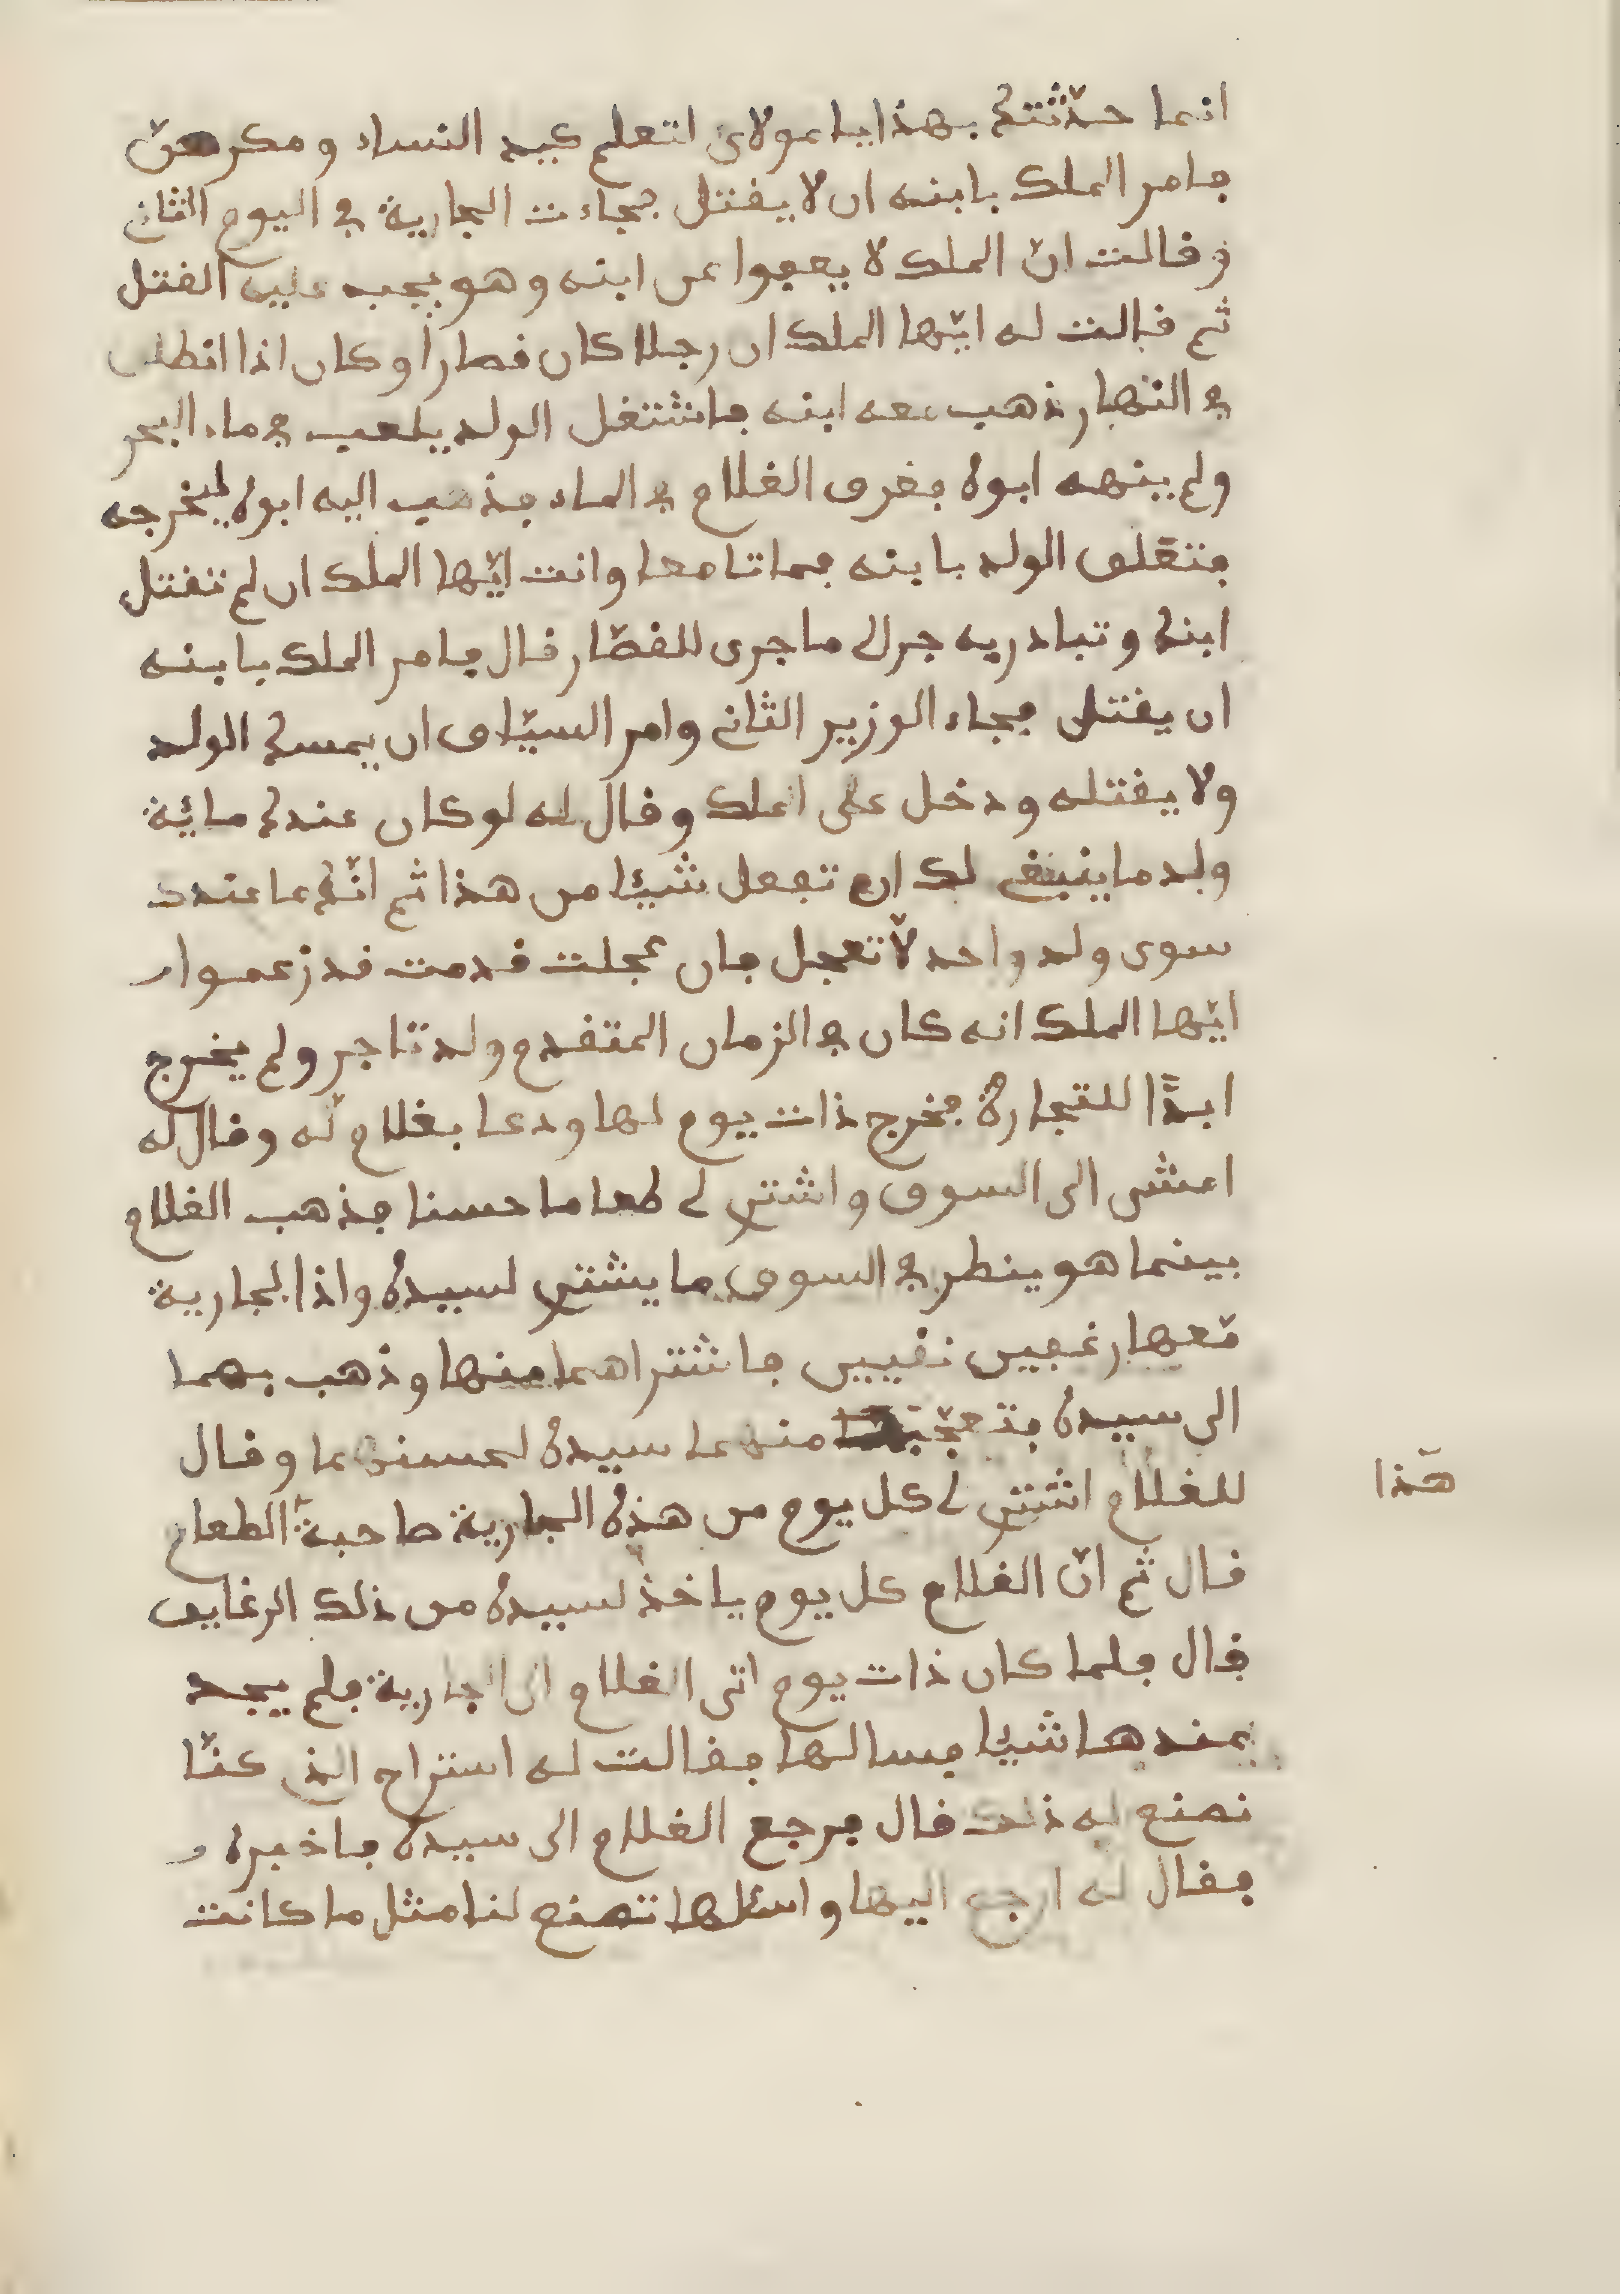 انما حدّثتك بهذا يا مولاى لتعلم كيد النساء ومكرهنّ
فامر الملك بابنه ان لا يقتل فجاءت الجارية في اليوم الثاني
وقالت انّ الملك لا يععوا عن ابنه وهو يجب عليه القتل
ثم قالت له ايّها الملك ان رجلا كان قصاراً وكان اذا انطلق
في النهار ذهب معه ابنه فاشتغل الولد يلعب في ماء البحر
ولم ينهه ابوه فغرق الغلام في الماء فذهب اليه ابوه ليخرجه
فتعّلق الولد بابنه فماتا معا وانت ايّها الملك ان لم تقتل
ابنك وتبادريه جرالك ماجرى للقصّار قال فامر الملك بابنه
ان يقتل فجاء الوزير الثاني وامر السيّاف ان يمسك الولد
ولا يقتله ودخل على الملك وقال له لو كان عندك مائية
ولد ما ينبغي لك ان تفعل شيئا من هذا ثم انّك ما عندك
سوى ولد واحد لا تعجل فان عجلت قدمت قد زعموا
ايّها الملك انه كان في الزمان المتقدم ولد تاجر ولم يخرج
ابدًا للتجارة فخرج ذات يوم لها ودعا بغلام له وقال له
امشى الى السوق واشتري لي طعاما حسنا فذهب الغلام
بينما هو ينظر في السوق ما يشتري لسيده واذا بجارية
معها رغيفين نقيين فاشتراهما منها وذهب بهما
الى سيده فتعجّب منهما سيده لحسنهما وقال
للغلام اشتري لي كل يوم من هذه الجارية صاحبة الطعام
هذا
قال ثم انّ الغلام كل يوم ياخذ لسيده من ذلك الرغايف
قال فلما كان ذات يوم اتى الغلام الى الجارية فلم يجد
عندها شيئا فسالها فقالت له استراح الذي كنّا
نصنع له ذلك قال فرجع الغلام الى سيده فاخبره
فقال له ارجع اليها واسئلها تصنع لنا مثل ما كانت